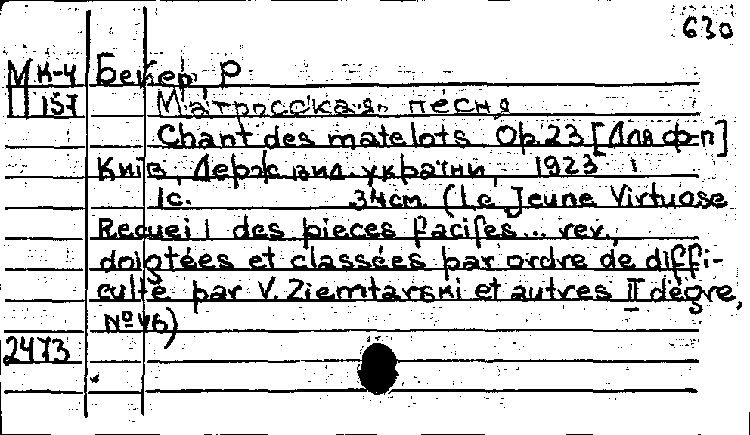 630
М К-4 Бекер Р
П 157 Матросская песня
Chant des matelots Op.23 [Для ф-п]
Київ, Держ вид. україни, 1923
1с. 34см. (Le Jeune Virtuose
Recueil des pieces faciles... rev.,
doigtées et classées par ordre de diffi-
culté par V. Ziemtarski et autres II dégre,
№46)
2473